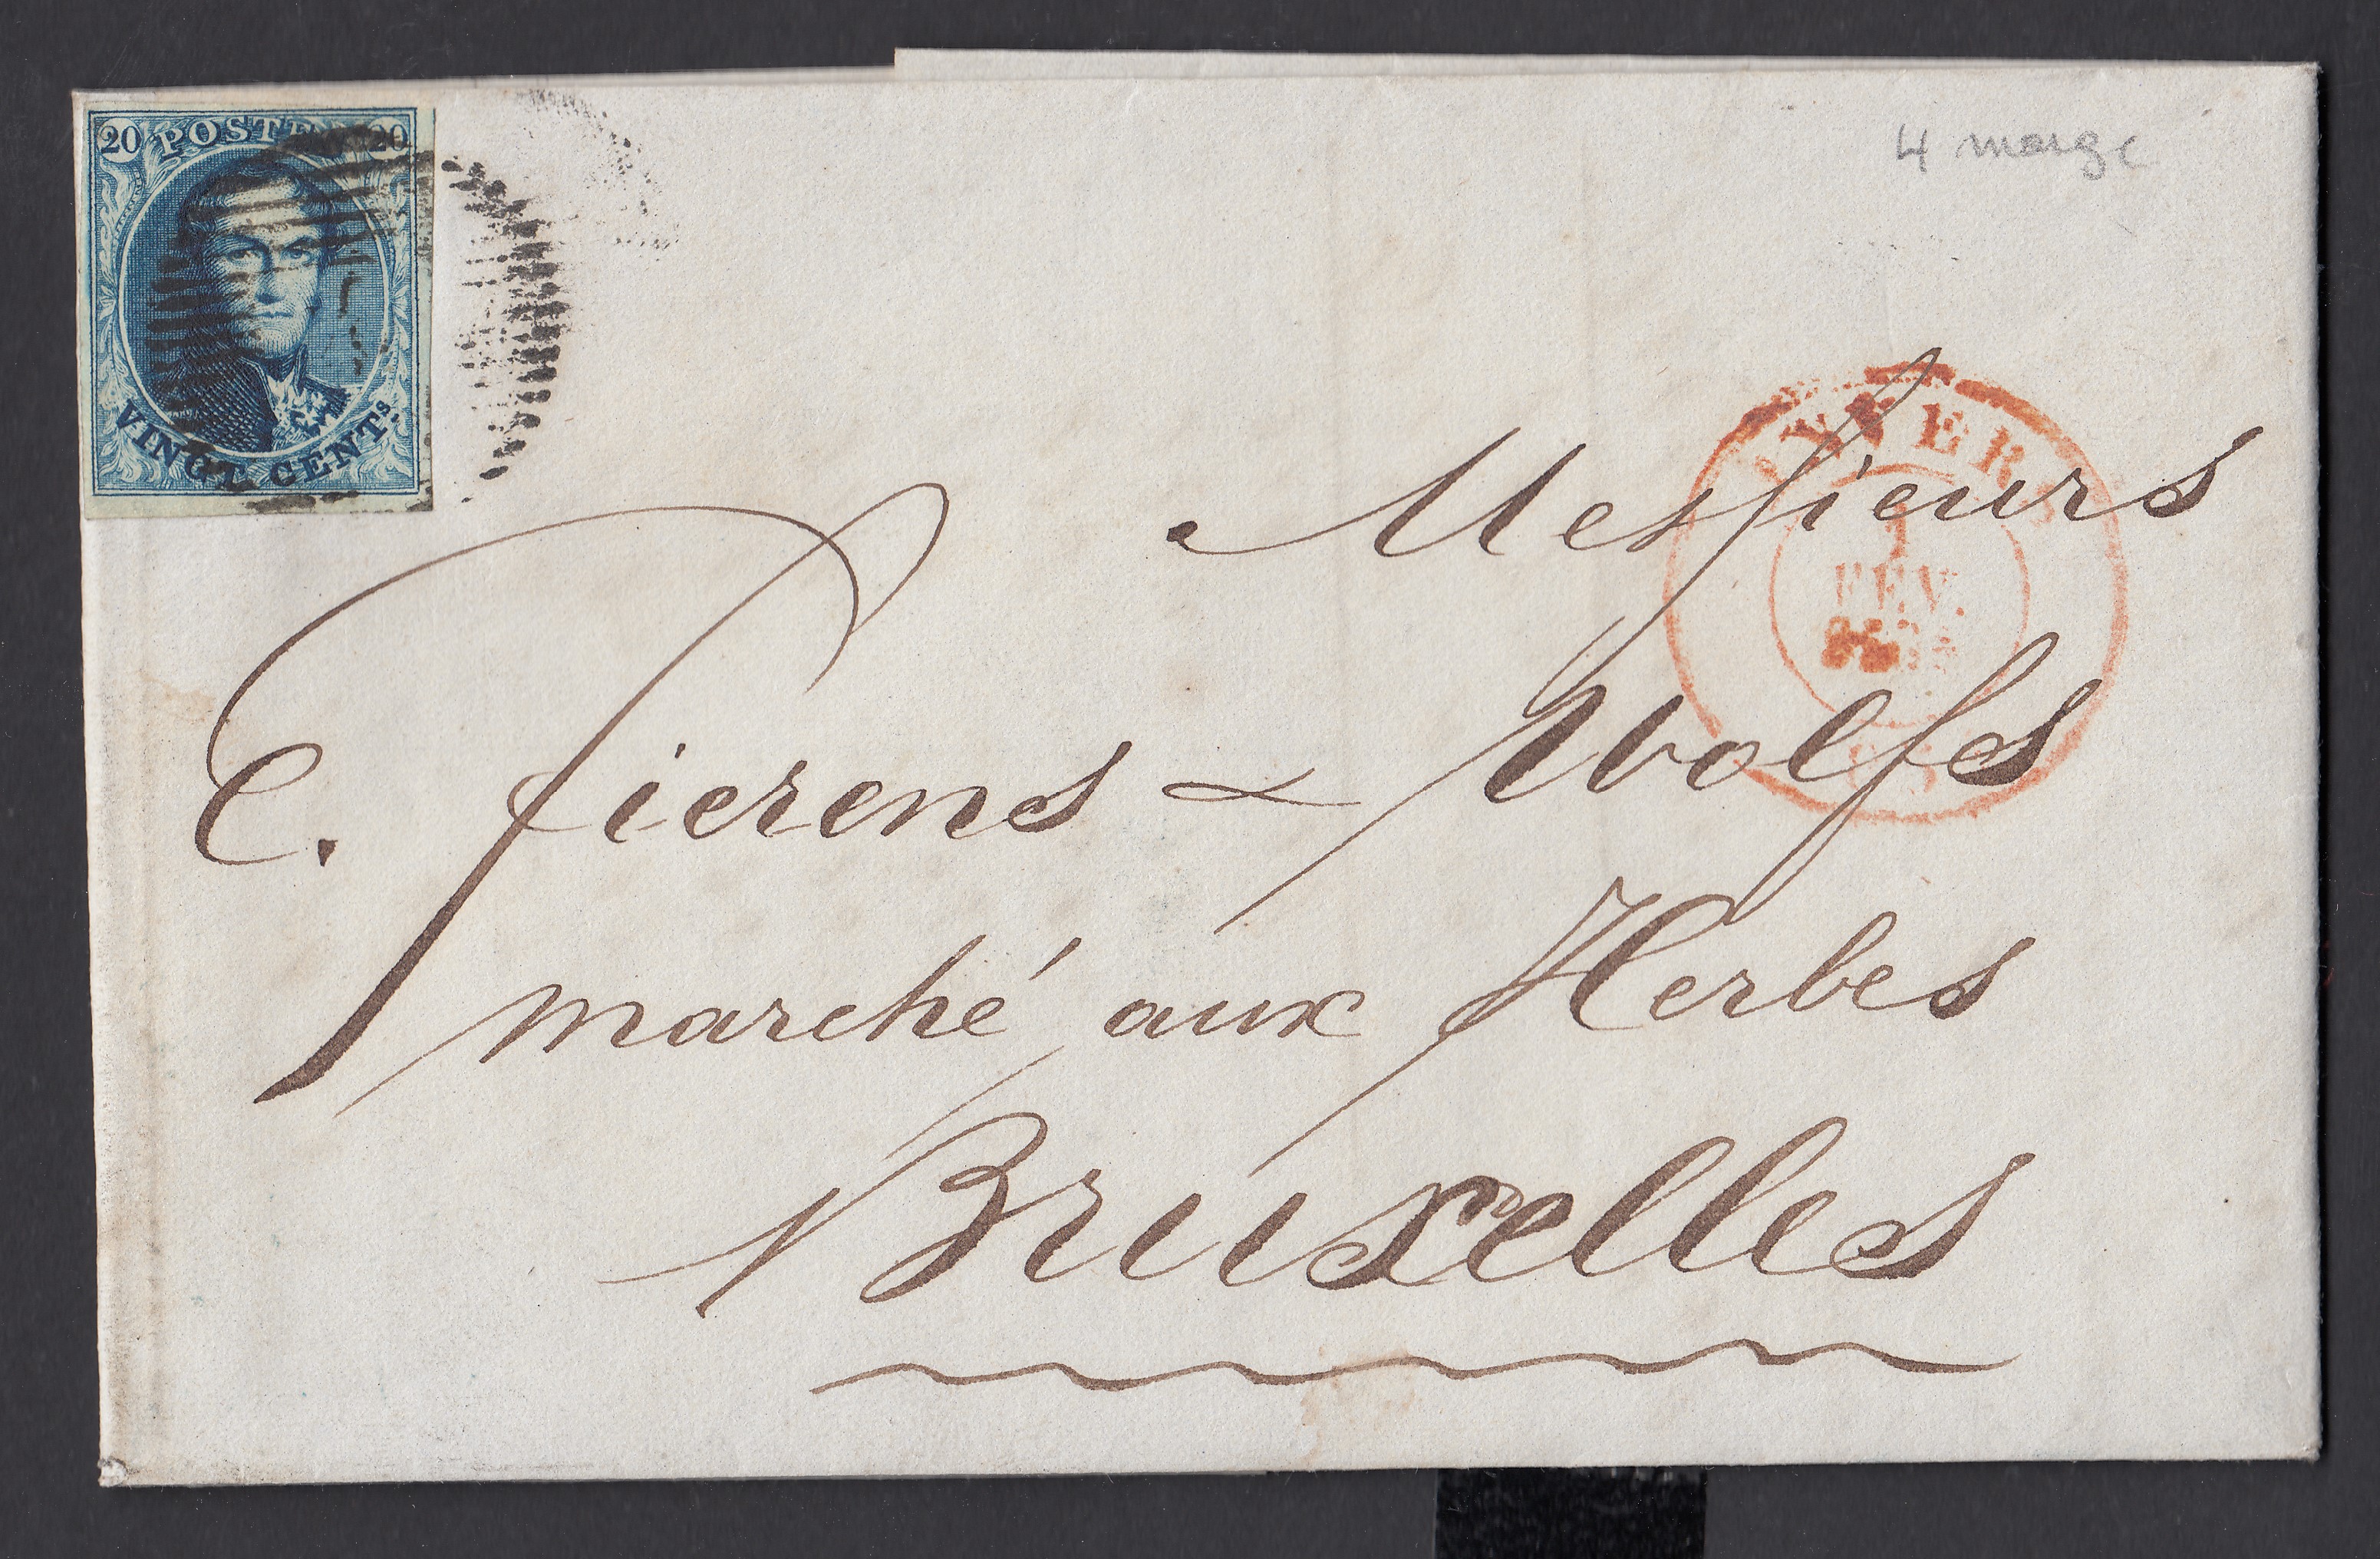 20 POSTES 20
VINGT CENTS.
4 marge
ANVERS
1
FEV.
Messieurs
C. Fierens & Wolfs
marché aux Herbes
Bruxelles